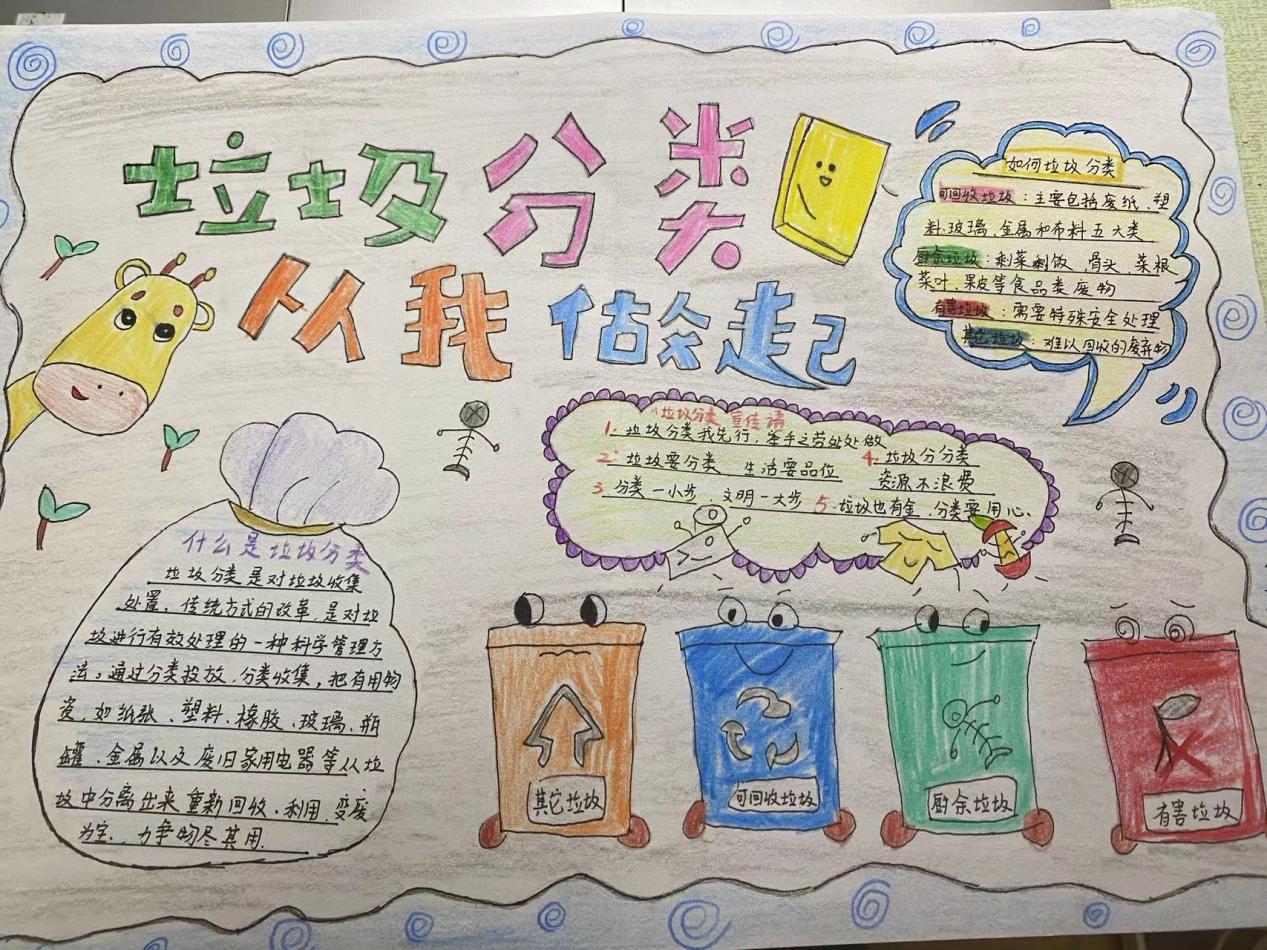 垃圾分类
从我做起
如何垃圾分类
可回收垃圾：主要包括废纸、塑
料、玻璃、金属和布料五大类
厨余垃圾：剩菜剩饭、骨头、菜根
菜叶、果皮等食品类废物
有害垃圾：需要特殊安全处理
其它垃圾：难以回收的废弃物
垃圾分类宣传语
1. 垃圾分类我先行，举手之劳处处做
2. 垃圾要分类 生活要品位
3. 分类一小步，文明一大步
4. 垃圾分分类
资源不浪费
5. 垃圾也有金，分类要用心.
什么是垃圾分类
垃圾分类是对垃圾收集
处置，传统方式的改革，是对垃
圾进行有效处理的一种科学管理方
法。通过分类投放、分类收集，把有用物
资，如纸张、塑料、橡胶、玻璃、瓶
罐、金属以及废旧家用电器等从垃
圾中分离出来重新回收、利用，变废
为宝，力争物尽其用.
其它垃圾
可回收垃圾
厨余垃圾
有害垃圾